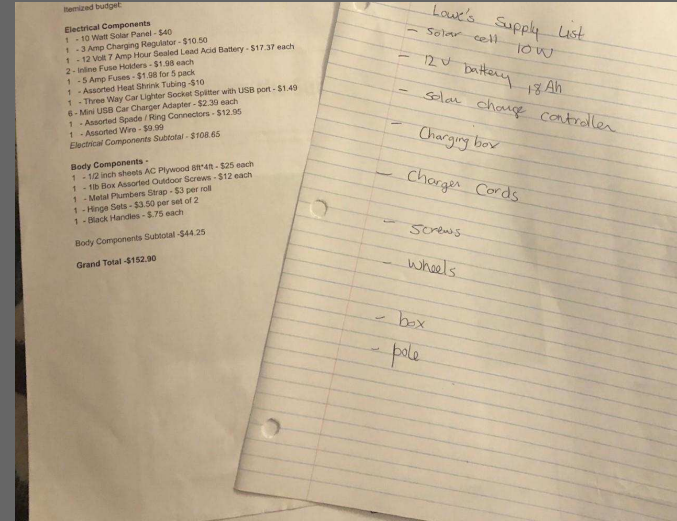 Itemized budget:
Electrical Components
1 - 10 Watt Solar Panel - $40
1 - 3 Amp Charging Regulator - $10.50
1 - 12 Volt 7 Amp Hour Sealed Lead Acid Battery - $17.37 each
2 - Inline Fuse Holders - $1.98 each
1 - 5 Amp Fuses - $1.98 for 5 pack
1 - Assorted Heat Shrink Tubing -$10
1 - Three Way Car Lighter Socket Splitter with USB port - $1.49
6 - Mini USB Car Charger Adapter - $2.39 each
1 - Assorted Spade / Ring Connectors - $12.95
1 - Assorted Wire - $9.99
Electrical Components Subtotal - $108.65
Body Components -
1 - 1/2 inch sheets AC Plywood 8ft*4ft - $25 each
1 - 1lb Box Assorted Outdoor Screws - $12 each
1 - Metal Plumbers Strap - $3 per roll
1 - Hinge Sets - $3.50 per set of 2
1 - Black Handles - $.75 each
Body Components Subtotal -$44.25
Grand Total -$152.90
Lowe's Supply List
- Solar cell 10W
- 12V battery 18Ah
- Solar charge controller
- Charging box
- Charger Cords
- Screws
- Wheels
- box
- pole